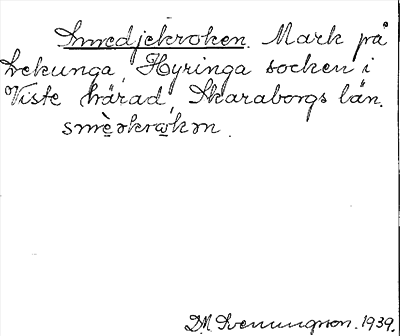 Smedjekroken. Mark på
Lekunga, Hyringa socken i
Viste härad, Skaraborgs län.
smèdkrọkən.
D.M. Svenungson. 1939.